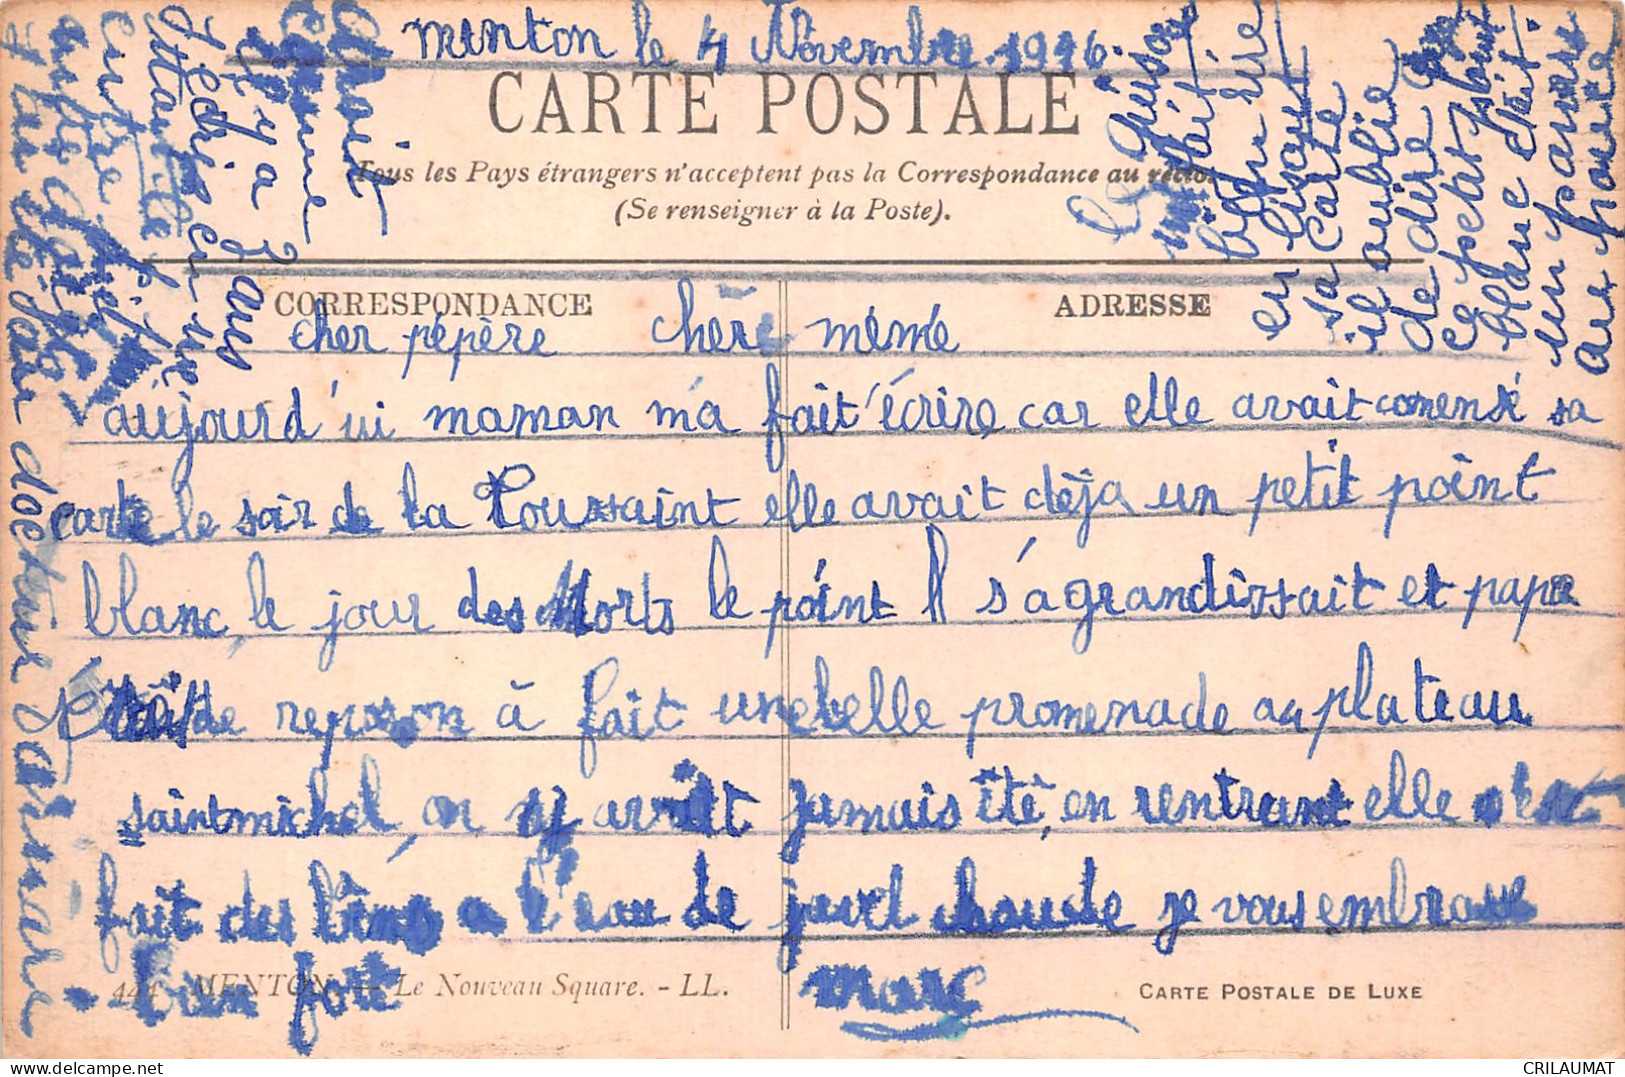 Menton le 4 Novembre 1916.
CARTE POSTALE
Tous les Pays étrangers n'acceptent pas la Correspondance au recto.
(Se renseigner à la Poste).
CORRESPONDANCE
ADRESSE
cher pépère chère mémé
aujourd'ui maman m'a fait écrire car elle avait comensé sa
carte le soir de la Toussaint elle avait déja un petit point
blanc, le jour des Morts le point s'agrandissait et papa
de repos on à fait une belle promenade au plateau
saint michel, on y avait jamais été, en rentrant elle s'est
fait des bains a l'eau de chaude je vous embrasse
bien fort
marc
444 MENTON. — Le Nouveau Square. - LL.
CARTE POSTALE DE LUXE
bien rire
en lisant
sa carte
il oublie
de dire que
ce petit point
blanc était
un panaris
au pouce
étroit
comme
il y a 7 ans
je dis en vue
entre
docteur
CRILAUMAT